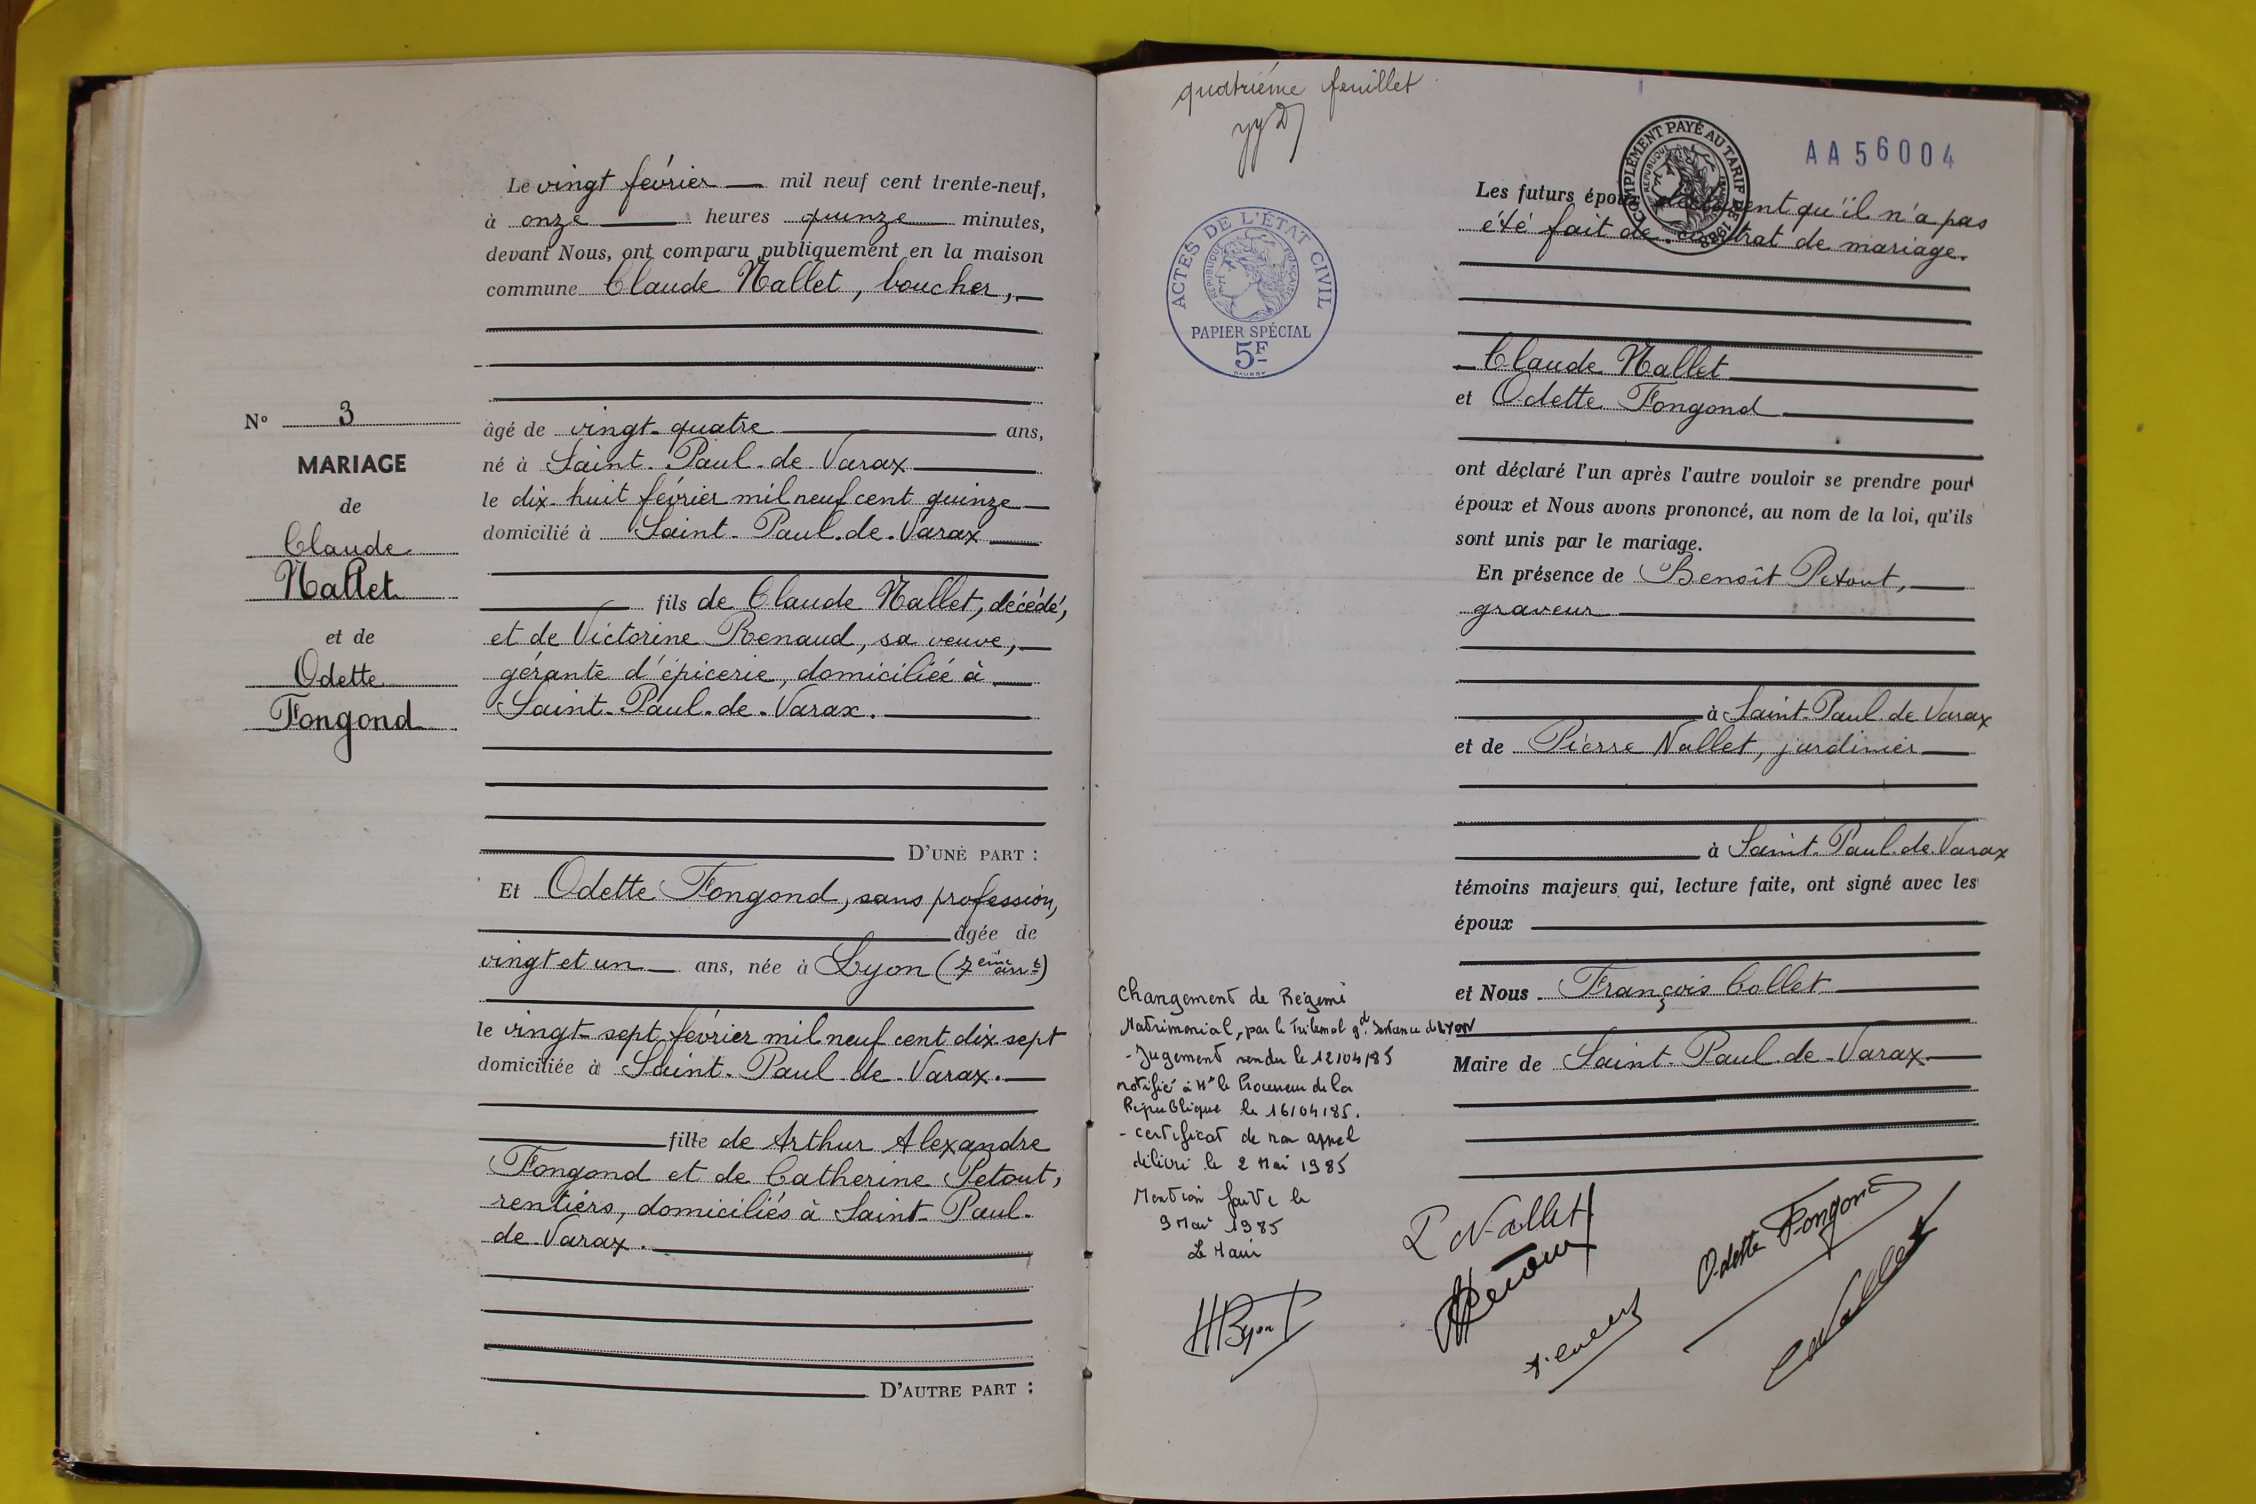 N° 3
MARIAGE
de
Claude
Nallet
et de
Odette
Fongond
Le vingt février mil neuf cent trente-neuf,
à onze heures quinze minutes,
devant Nous, ont comparu publiquement en la maison
commune Claude Nallet, boucher,
âgé de vingt-quatre ans,
né à Saint-Paul-de-Varax
le dix-huit février mil neuf cent quinze
domicilié à Saint-Paul-de-Varax
fils de Claude Nallet, décédé,
et de Victorine Renaud, sa veuve,
gérante d'épicerie, domiciliée à
Saint-Paul-de-Varax.
D'UNE PART :
Et Odette Fongond, sans profession,
âgée de
vingt et un ans, née à Lyon (7eme arrt)
le vingt-sept février mil neuf cent dix sept
domiciliée à Saint-Paul-de-Varax.
fille de Arthur Alexandre
Fongond et de Catherine Petout,
rentiers, domiciliés à Saint-Paul-
de-Varax.
D'AUTRE PART :
quatrième feuillet
ACTES DE L'ÉTAT CIVIL
RÉPUBLIQUE FRANÇAISE
PAPIER SPÉCIAL
5F
COMPLÉMENT PAYÉ AU TARIF DE 1938
AA56004
Les futurs époux déclarent qu'il n'a pas
été fait de contrat de mariage.
Claude Nallet
et Odette Fongond
ont déclaré l'un après l'autre vouloir se prendre pour
époux et Nous avons prononcé, au nom de la loi, qu'ils
sont unis par le mariage.
En présence de Benoît Petout,
graveur
à Saint-Paul-de-Varax
et de Pierre Nallet, jardinier
à Saint-Paul-de-Varax
témoins majeurs qui, lecture faite, ont signé avec les
époux
et Nous François Collet
Maire de Saint-Paul-de-Varax
Changement de Régime
Matrimonial, par le Tribunal gde Instance de LYON
- Jugement rendu le 12/04/85
notifié à Mr le Procureur de la
République le 16/04/85.
- certificat de non appel
délivré le 2 Mai 1985
Mention faite le
9 Mai 1985
Le Maire
P Nallet
Petout
Odette Fongond
C Nallet